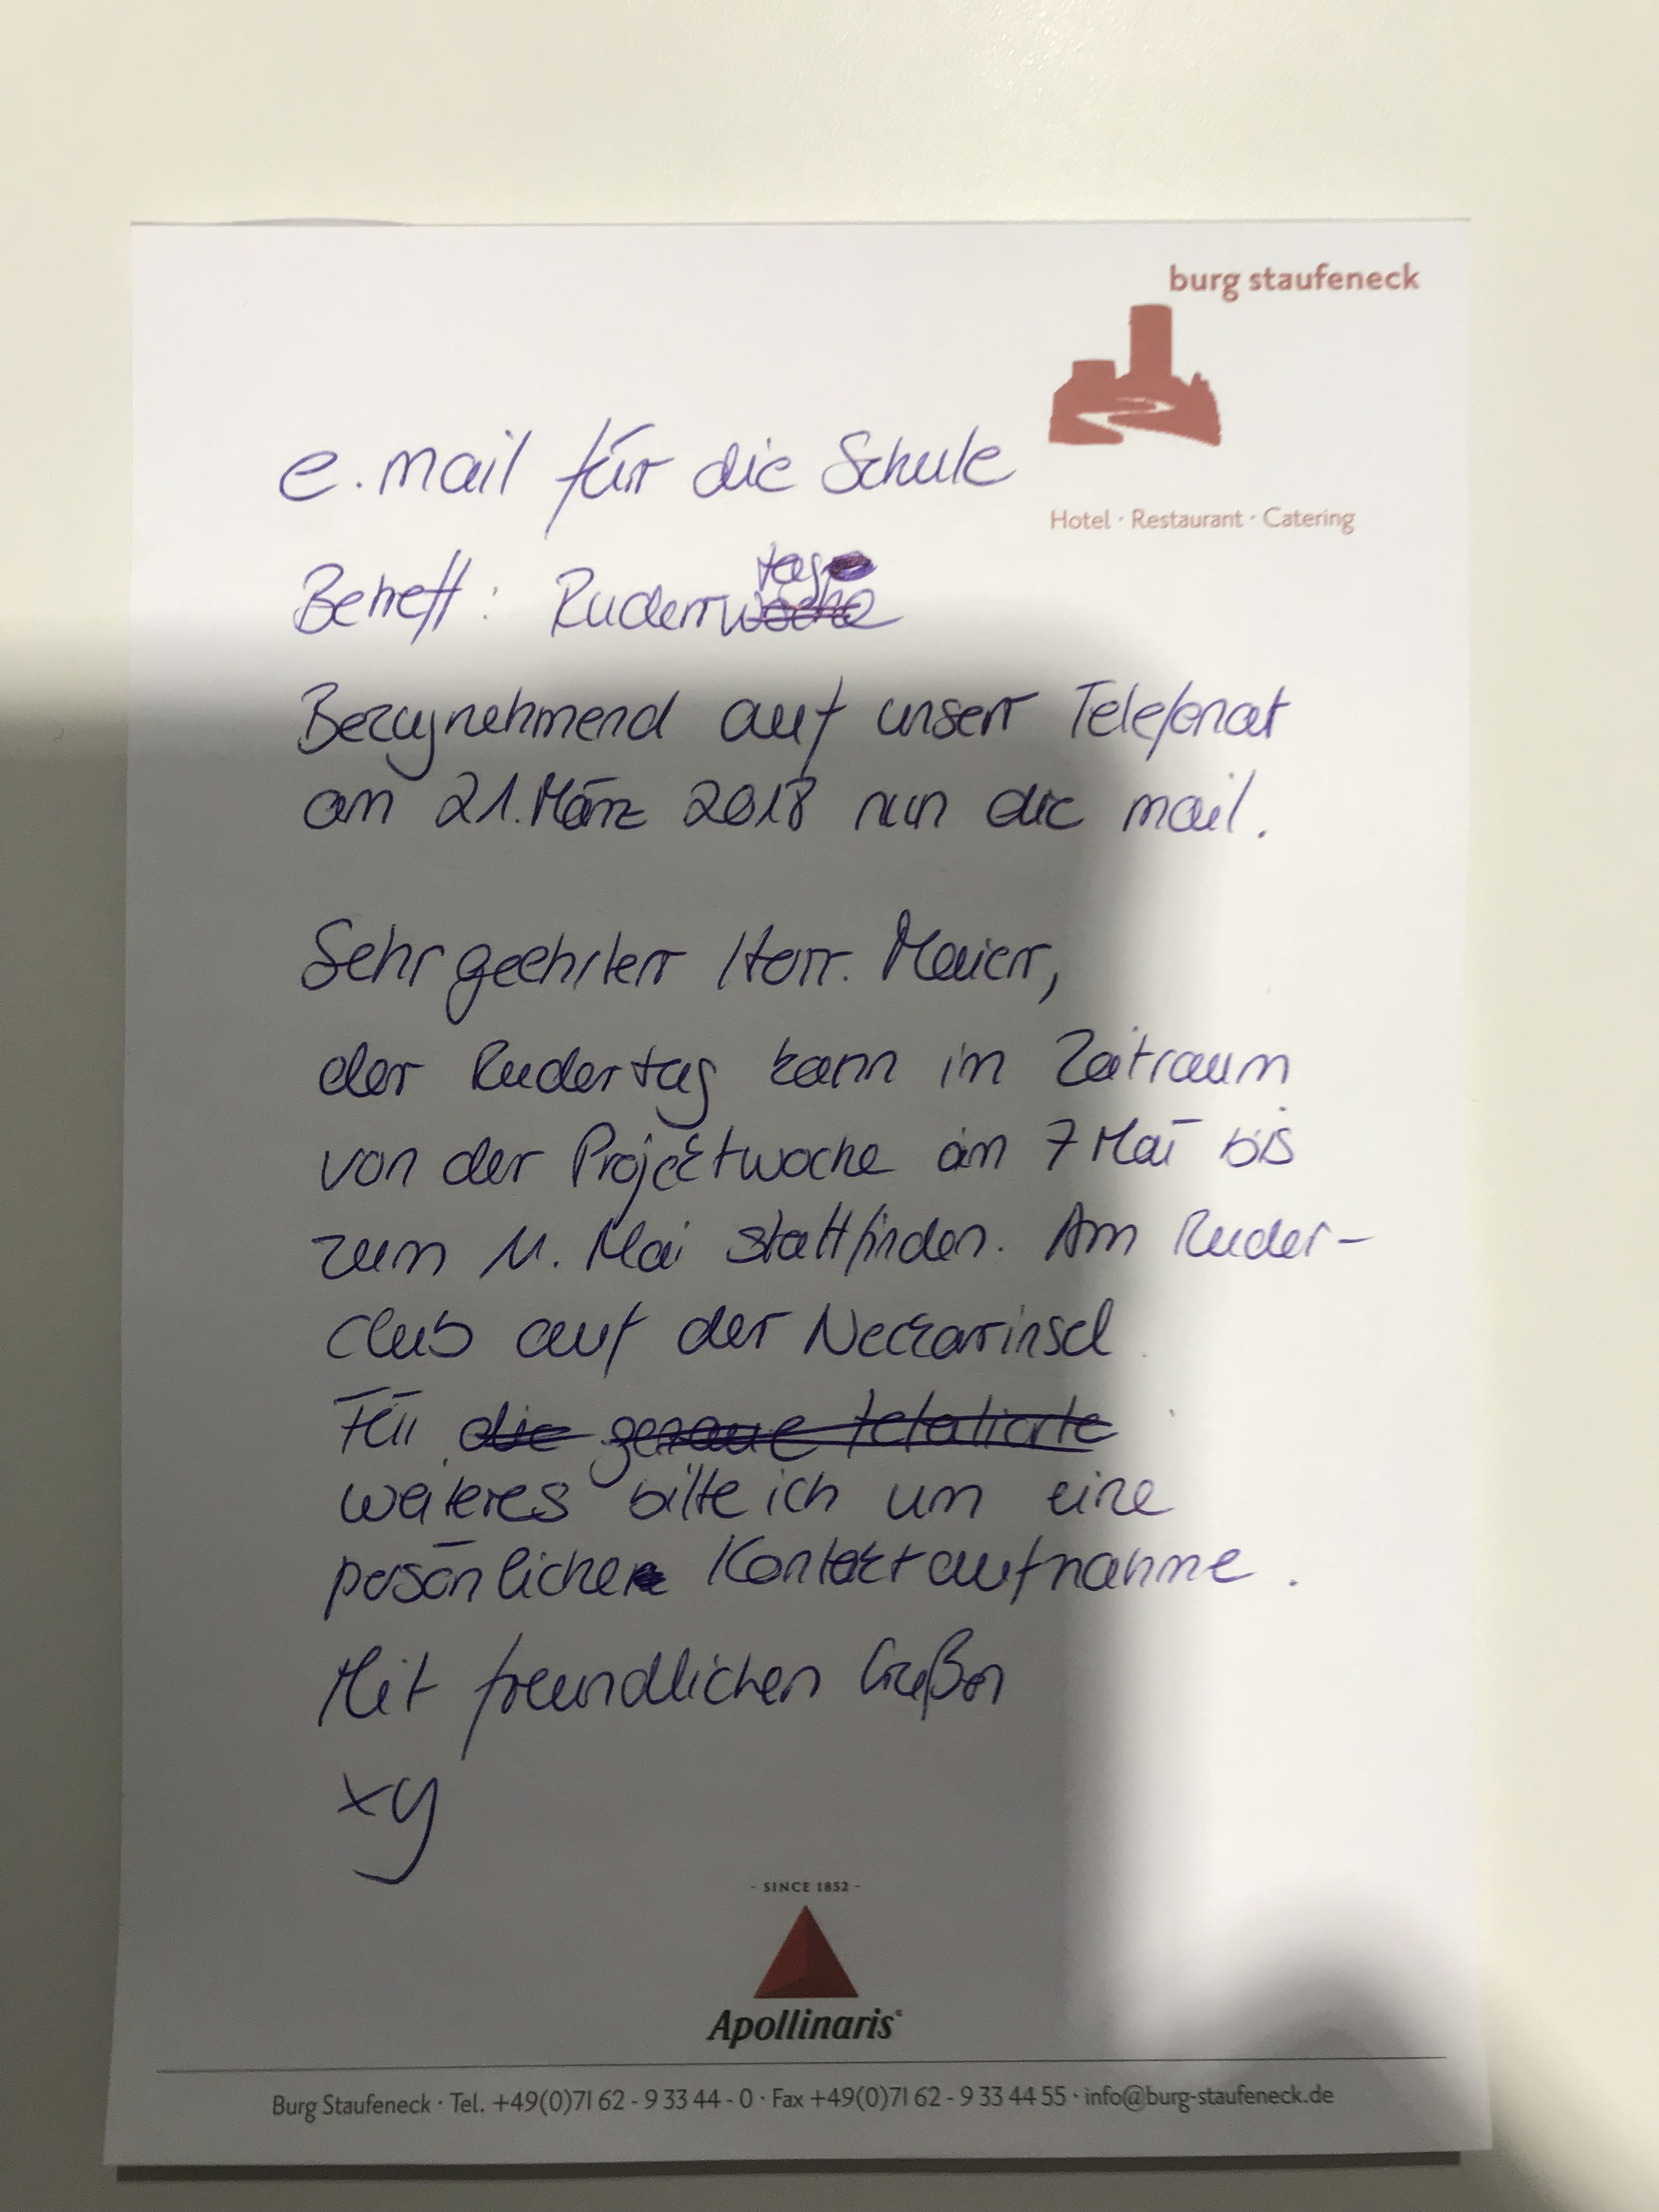 burg staufeneck
Hotel · Restaurant · Catering
e.mail für die Schule
Betreff: Rudertag
Bezugnehmend auf unser Telefonat
am 21. März 2018 nun die mail.
Sehr geehrter Herr. Maier,
der Rudertag kann im Zeitraum
von der Projektwoche am 7 Mai bis
zum 11. Mai stattfinden. Am Ruder-
club auf der Neckarinsel
Für die genaue
weiteres bitte ich um eine
persönliche Kontaktaufnahme.
Mit freundlichen Grüßen
xy
- SINCE 1852 -
Apollinaris
Burg Staufeneck · Tel. +49(0)71 62 - 9 33 44 - 0 · Fax +49(0)71 62 - 9 33 44 55 · info@burg-staufeneck.de